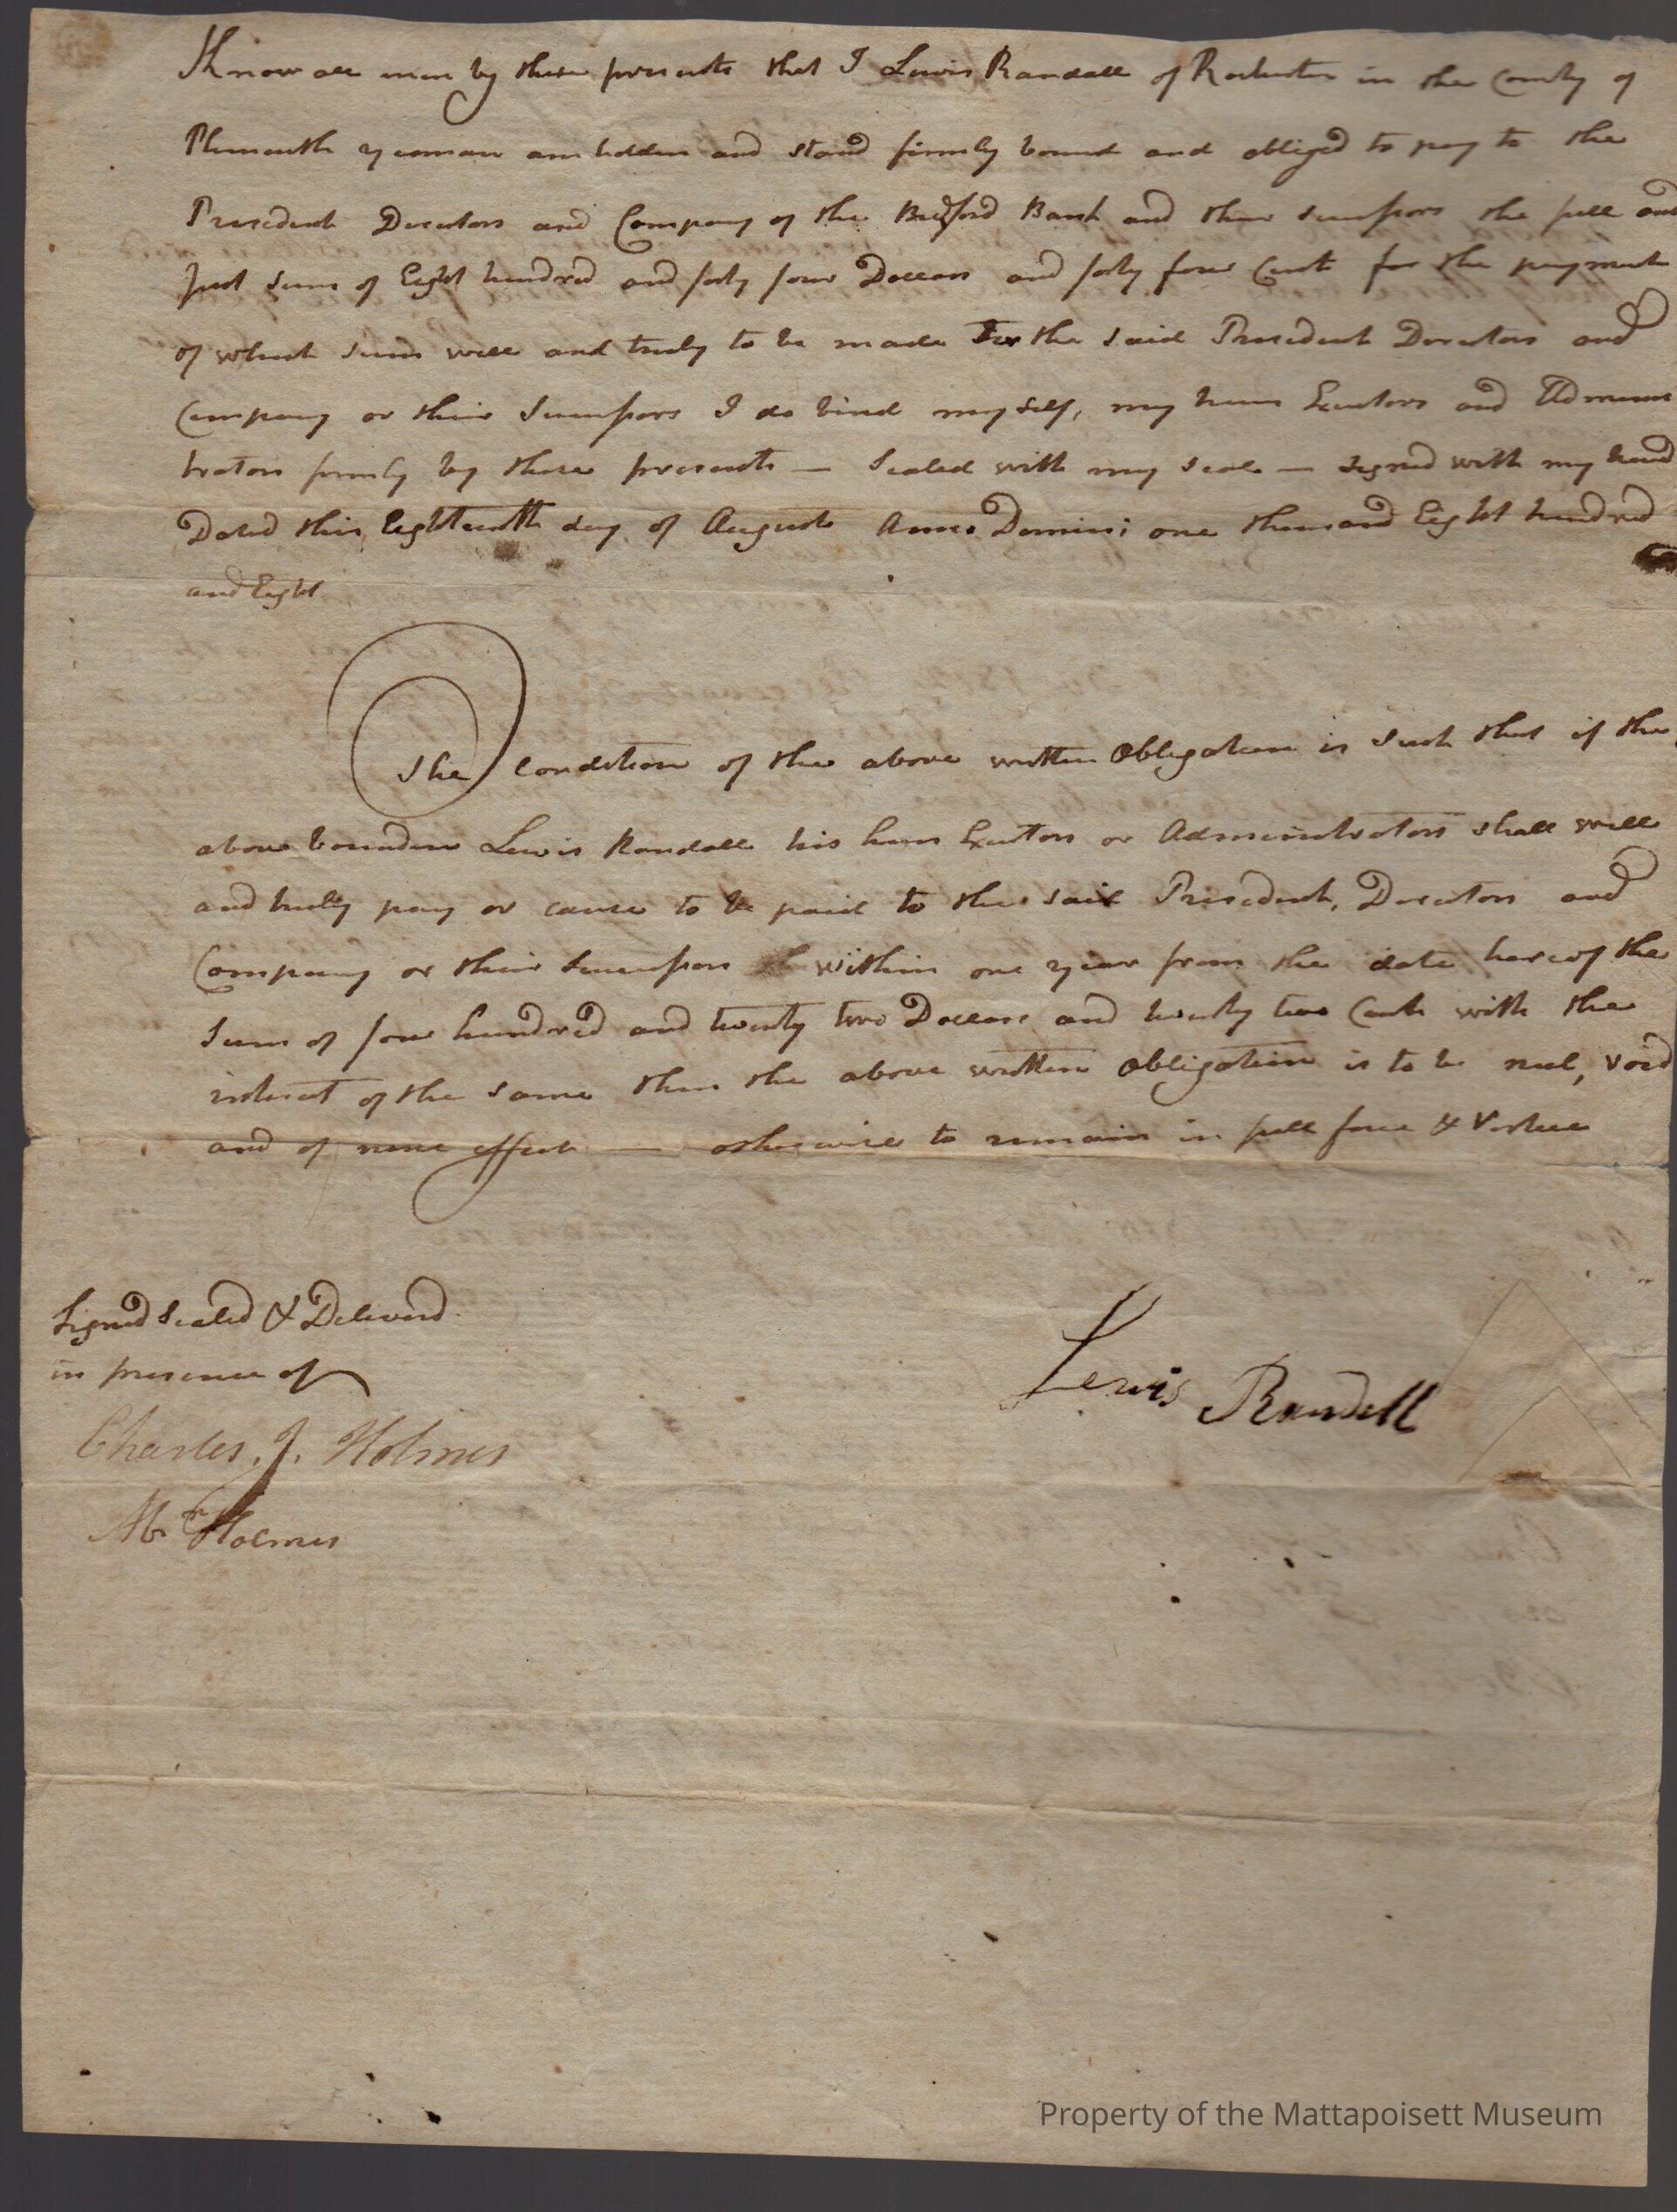 Know all men by these presents that I Lewis Randall of Rochester in the County of
Plymouth yeoman am holden and stand firmly bound and obliged to pay to the
President Directors and Company of the Bedford Bank and their Successors the full and
Just Sum of Eight hundred and forty four Dollars and forty four Cents for the payment
of which Sum well and truly to be made to the said President Directors and
Company or their Successors I do bind myself, my heirs Executors and Adminis
trators firmly by these presents — Sealed with my Seal — Signed with my hand
Dated this Eighteenth day of August Anno Domini one thousand Eight hundred
and Eight
The Condition of the above written Obligation is Such that if the
above bounden Lewis Randall his heirs Exutors or Administrators shall well
and truly pay or cause to be paid to the said President, Directors and
Company or their Successors within one year from the date hereof the
Sum of four hundred and twenty two Dollars and twenty two Cents with the
interest of the same then the above written Obligation is to be null, void
and of none effect — otherwise to remain in full force & Vertue
Signed Sealed & Deliverd
in presence of
Lewis Randell
Charles. J. Holmes
Abr. Holmes
Property of the Mattapoisett Museum